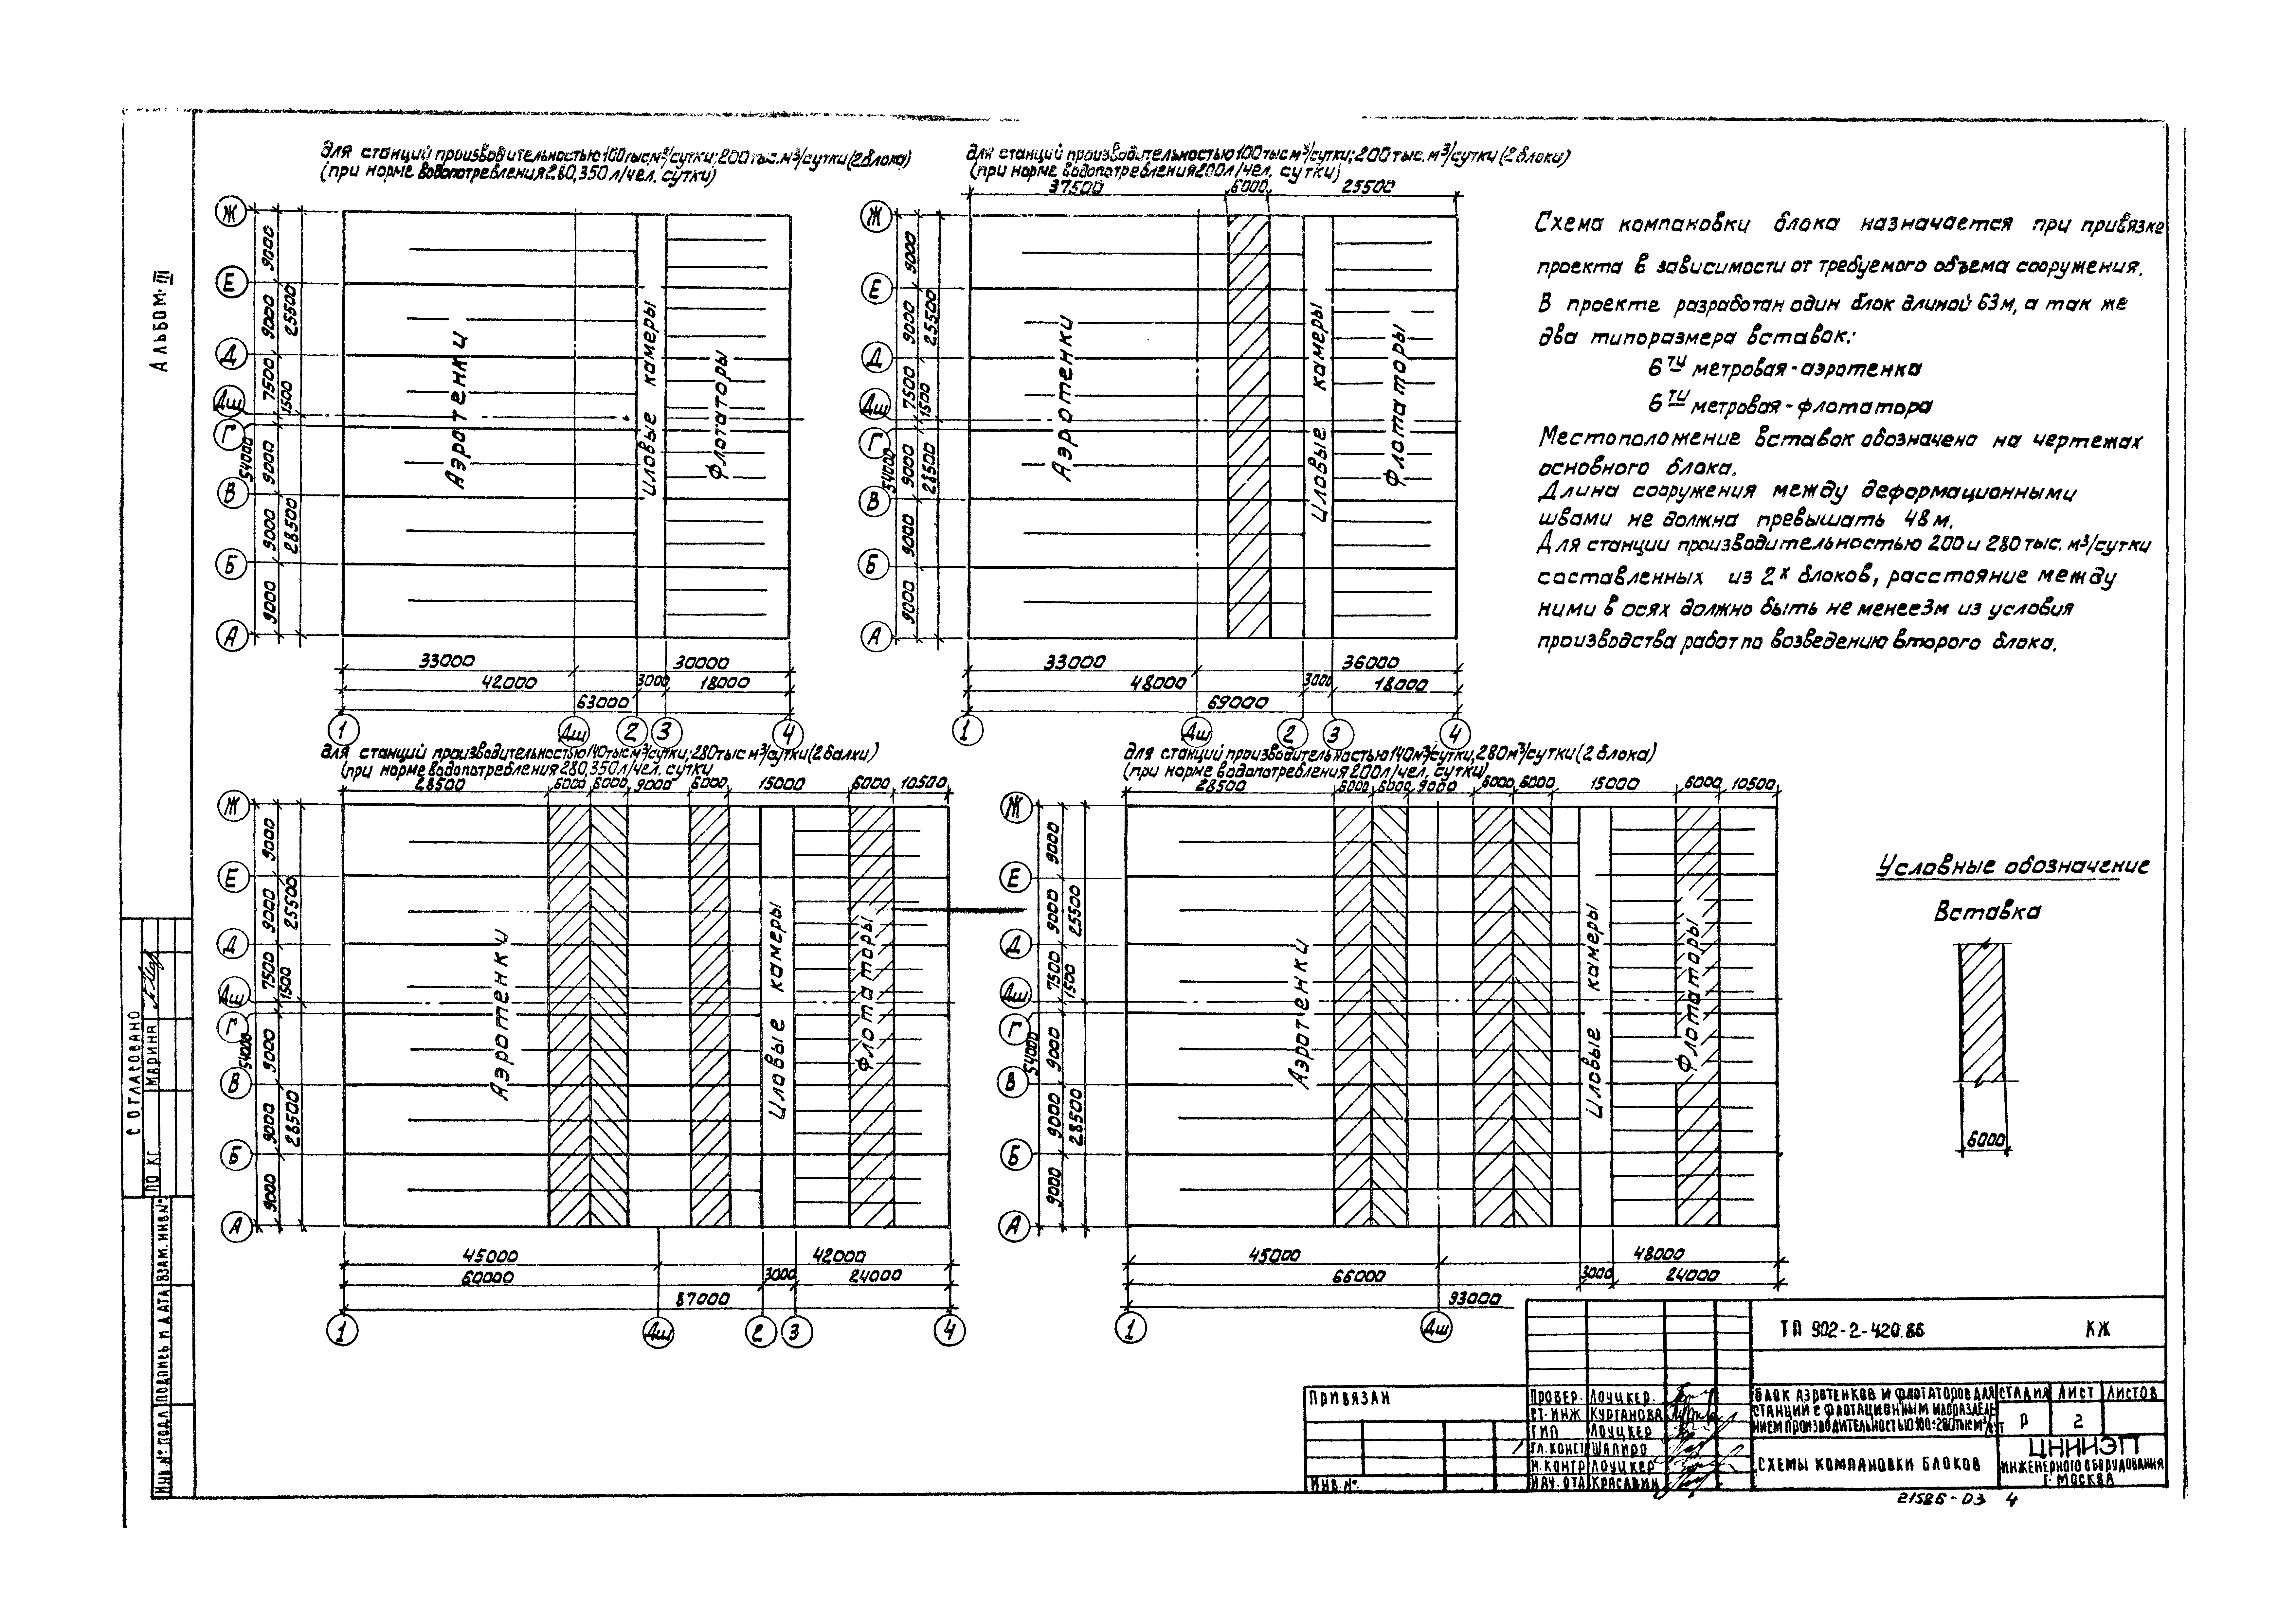 Альбом III
для станций производительностью 100 тыс.м³/сутки; 200 тыс. м³/сутки (2 блока)
(при норме водопотребления 280, 350 л/чел. сутки)
Ж
Е
Д
Дш
Г
В
Б
А
9000
9000
7500
9000
9000
9000
25500
1500
28500
54000
Аэротенки
Иловые камеры
Флотаторы
33000
30000
42000
3000
18000
63000
1
Дш
2
3
4
для станций производительностью 100 тыс м³/сутки; 200 тыс. м³/сутки (2 блока)
(при норме водопотребления 200 л/чел. сутки)
37500
6000
25500
Ж
Е
Д
Дш
Г
В
Б
А
9000
9000
7500
9000
9000
9000
25500
1500
28500
54000
Аэротенки
Иловые камеры
Флотаторы
33000
36000
48000
3000
18000
69000
1
Дш
2
3
4
Схема компановки блока назначается при привязке
проекта в зависимости от требуемого объема сооружения.
В проекте разработан один блок длиной 63м, а так же
два типоразмера вставок:
6ти метровая - аэротенка
6ти метровая - флотатора
Местоположение вставок обозначено на чертежах
основного блока.
Длина сооружения между деформационными
швами не должна превышать 48 м.
Для станции производительностью 200 и 280 тыс. м³/сутки
составленных из 2х блоков, расстояние между
ними в осях должно быть не менее 3м из условия
производства работ по возведению второго блока.
для станций производительностью 140 тыс м³/сутки; 280 тыс м³/сутки (2 балки)
(при норме водопотребления 280, 350 л/чел. сутки
28500
6000
6000
9000
6000
15000
6000
10500
Ж
Е
Д
Дш
Г
В
Б
А
9000
9000
7500
9000
9000
9000
25500
1500
28500
54000
Аэротенки
Иловые камеры
Флотаторы
45000
42000
60000
3000
24000
87000
1
Дш
2
3
4
для станций производительностью 140 м³/сутки, 280 м³/сутки (2 блока)
(при норме водопотребления 200 л/чел. сутки)
28500
6000
6000
9000
6000
6000
15000
6000
10500
Ж
Е
Д
Дш
Г
В
Б
А
9000
9000
7500
9000
9000
9000
25500
1500
28500
54000
Аэротенки
Иловые камеры
Флотаторы
45000
48000
66000
3000
24000
93000
1
Дш
Условные обозначение
Вставка
6000
СОГЛАСОВАНО
ПО КГ МАРИНА
ИНВ.№ ПОДЛ ПОДПИСЬ И ДАТА ВЗАМ. ИНВ№
ПРИВЯЗАН
ИНВ.№
ПРОВЕР. ЛОУЦКЕР.
СТ.ИНЖ КУРГАНОВА
ГИП ЛОУЦКЕР
ГЛ.КОНСТ ШАПИРО
Н.КОНТР ЛОУЦКЕР
НАЧ.ОТД КРАСАВИН
ТП 902-2-420.86 КЖ
БЛОК АЭРОТЕНКОВ И ФЛОТАТОРОВ ДЛЯ
СТАНЦИЙ С ФЛОТАЦИОННЫМ ИЛОРАЗДЕЛЕ-
НИЕМ ПРОИЗВОДИТЕЛЬНОСТЬЮ 100÷280 ТЫС М³/СУТ
СТАДИЯ ЛИСТ ЛИСТОВ
Р 2
СХЕМЫ КОМПАНОВКИ БЛОКОВ
ЦНИИЭП
ИНЖЕНЕРНОГО ОБОРУДОВАНИЯ
Г. МОСКВА
21586-03 4